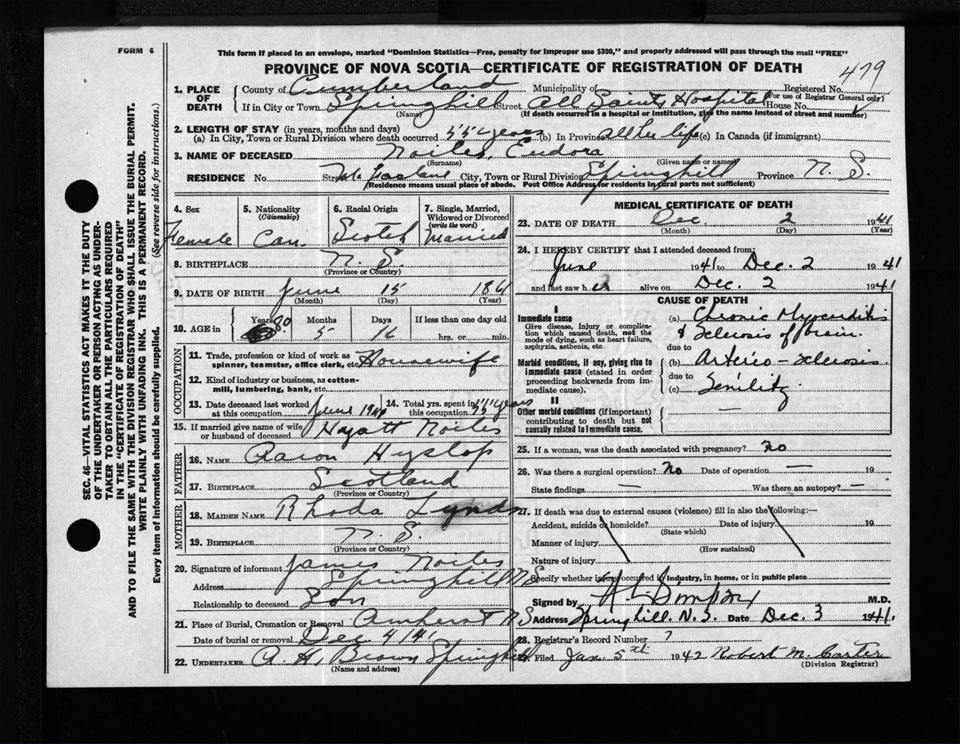 FORM 6
This form if placed in an envelope, marked "Dominion Statistics—Free, penalty for improper use $300," and properly addressed will pass through the mail "FREE"
PROVINCE OF NOVA SCOTIA—CERTIFICATE OF REGISTRATION OF DEATH
479
1. PLACE OF DEATH
County of Cumberland Municipality of Registered No.
(For use of Registrar General only)
If in City or Town Springhill Street All Saints Hospital House No.
(Name) (If death occurred in a hospital or institution, give the name instead of street and number)
2. LENGTH OF STAY (in years, months and days)
(a) In City, Town or Rural Division where death occurred 55 years (b) In Province all her life (c) In Canada (if immigrant)
3. NAME OF DECEASED Noiles, Eudora
(Surname) (Given name or names)
RESIDENCE No. Street McFarlane City, Town or Rural Division Springhill Province N. S.
(Residence means usual place of abode. Post Office Address for residents in rural parts not sufficient)
4. Sex Female
5. Nationality (Citizenship) Can.
6. Racial Origin Scotch
7. Single, Married, Widowed or Divorced (write the word) Married
8. BIRTHPLACE N. S.
(Province or Country)
9. DATE OF BIRTH June 15 1861
(Month) (Day) (Year)
10. AGE in Years 80 Months 5 Days 16 If less than one day old
hrs. or min.
OCCUPATION
11. Trade, profession or kind of work as spinner, teamster, office clerk, etc. Housewife
12. Kind of industry or business, as cotton-mill, lumbering, bank, etc.
13. Date deceased last worked at this occupation June 1940
14. Total yrs. spent in this occupation 55 years
15. If married give name of wife or husband of deceased Hyatt Noiles
FATHER
16. NAME Aaron Hyslop
17. BIRTHPLACE Scotland
(Province or Country)
MOTHER
18. MAIDEN NAME Rhoda Lynds
19. BIRTHPLACE N. S.
(Province or Country)
20. Signature of informant James Noiles
Address Springhill N.S
Relationship to deceased Son
21. Place of Burial, Cremation or Removal Amherst N S
Date of burial or removal Dec 4/41
22. UNDERTAKER A. H. Brown Springhill
(Name and address)
MEDICAL CERTIFICATE OF DEATH
23. DATE OF DEATH Dec. 2 1941
(Month) (Day) (Year)
24. I HEREBY CERTIFY that I attended deceased from:
June 1941 to Dec. 2 1941
and last saw her alive on Dec. 2 1941
CAUSE OF DEATH
I
Immediate cause
Give disease, injury or complication which caused death, not the mode of dying, such as heart failure, asphyxia, asthenia, etc.
(a) Chronic Myocarditis
& Sclerosis of brain
due to
Morbid conditions, if any, giving rise to immediate cause (stated in order proceeding backwards from immediate cause).
(b) Arterio-sclerosis
due to
(c) Senility
II
Other morbid conditions (if important) contributing to death but not causally related to immediate cause.
25. If a woman, was the death associated with pregnancy? No
26. Was there a surgical operation? No Date of operation — 19
State findings — Was there an autopsy? —
27. If death was due to external causes (violence) fill in also the following:—
Accident, suicide or homicide? Date of injury 19
(State which)
Manner of injury
(How sustained)
Nature of injury
Specify whether injury occurred in industry, in home, or in public place
Signed by M.D.
Address Springhill. N. S. Date Dec. 3 1941.
28. Registrar's Record Number 7
29. Filed Jan. 5th 1942 Robert M. Carter
(Division Registrar)
SEC. 46—VITAL STATISTICS ACT MAKES IT THE DUTY
OF THE UNDERTAKER OR PERSON ACTING AS UNDER-
TAKER TO OBTAIN ALL THE PARTICULARS REQUIRED
IN THE "CERTIFICATE OF REGISTRATION OF DEATH"
AND TO FILE THE SAME WITH THE DIVISION REGISTRAR WHO SHALL ISSUE THE BURIAL PERMIT.
WRITE PLAINLY WITH UNFADING INK. THIS IS A PERMANENT RECORD.
Every item of information should be carefully supplied. (See reverse side for instructions.)